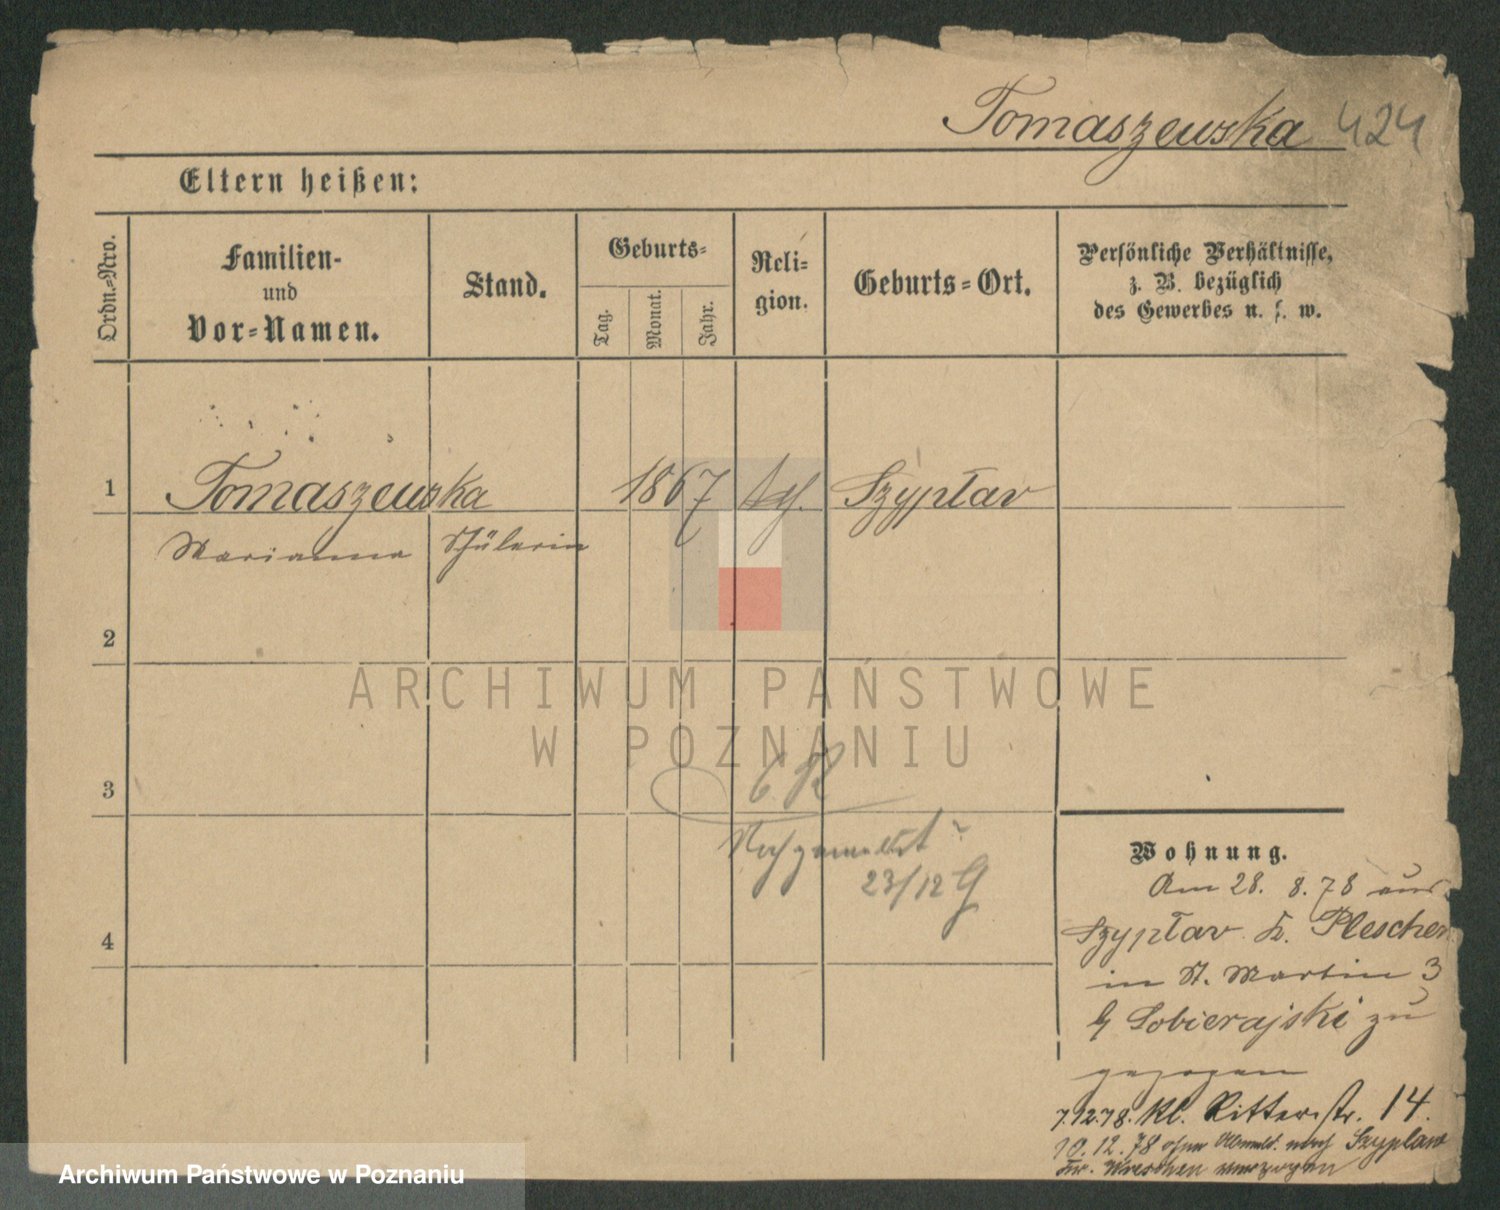 Tomaszewska 424
Eltern heißen:
Ordn.-Nro.
Familien-
und
Vor-Namen.
Stand.
Geburts-
Tag.
Monat.
Jahr.
Reli-
gion.
Geburts-Ort.
Persönliche Verhältnisse,
z. B. bezüglich
des Gewerbes u. s. w.
1 Tomaszewska 1867 Szypłav
Marianna Schülerin
2
ARCHIWUM PAŃSTWOWE
W POZNANIU
3
Wohnung.
23/12
Am 28. 8. 78 aus
Szypłav Kr. Pleschen
4
in St. Martin 3
b/ Sobierajski zu
gezogen
7.12.78. Kl. Ritterstr. 14.
10.12.78 ohne Abmeld. nach Szyplaw
Kr. Wreschen verzogen
Archiwum Państwowe w Poznaniu